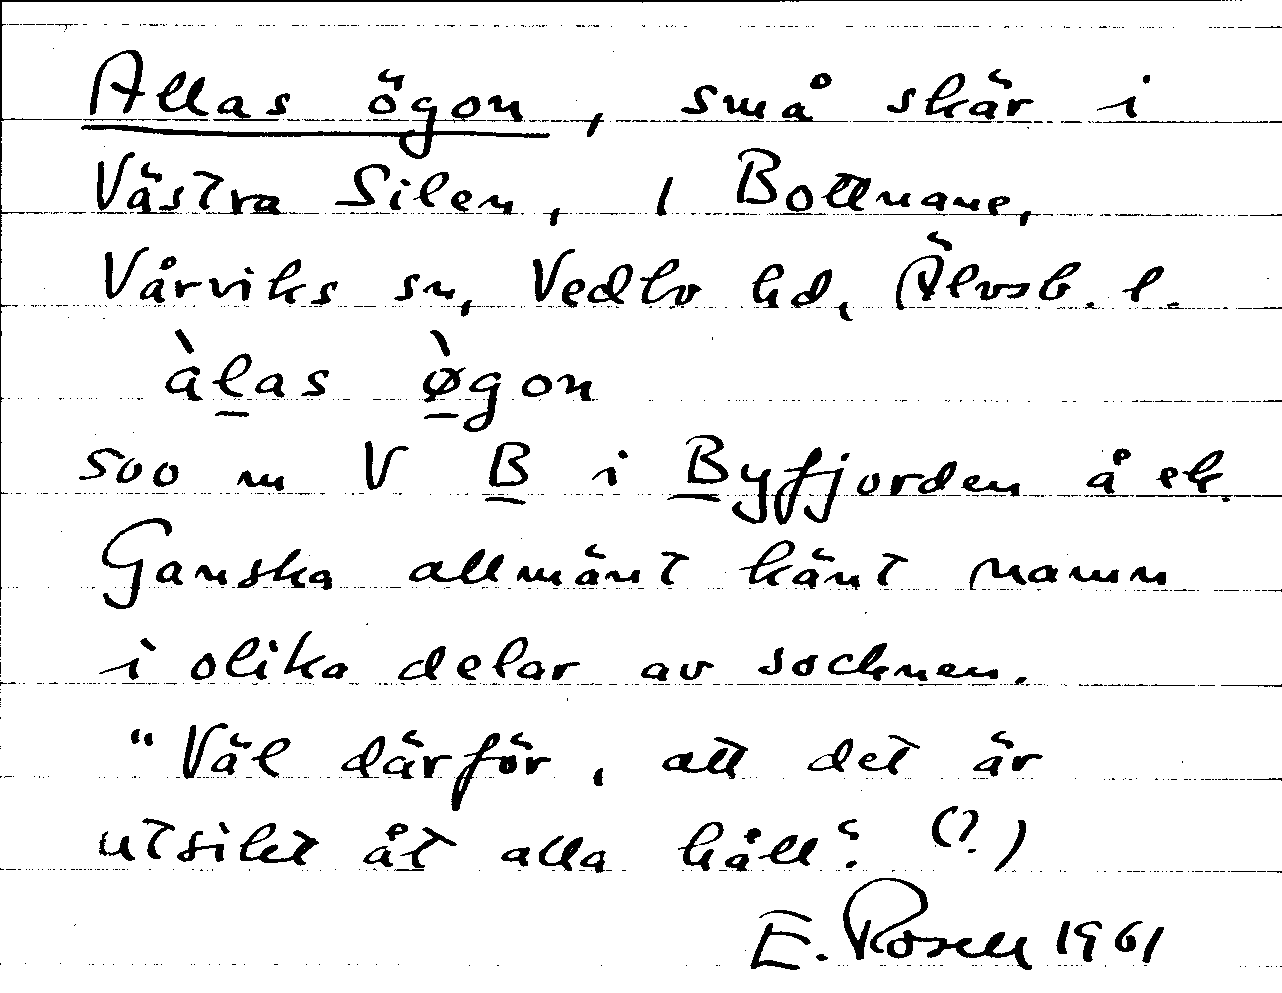 Allas ögon, små skär i
Västra Silen, 1 Bottnane,
Vårviks sn, Vedbo hd, Älvsb. l.
àlas ø̀gon
500 m V B i Byfjorden å ek.
Ganska allmänt känt namn
i olika delar av socknen.
"Väl därför, att det är
utsikt åt alla håll". (?)
E. Rosell 1961